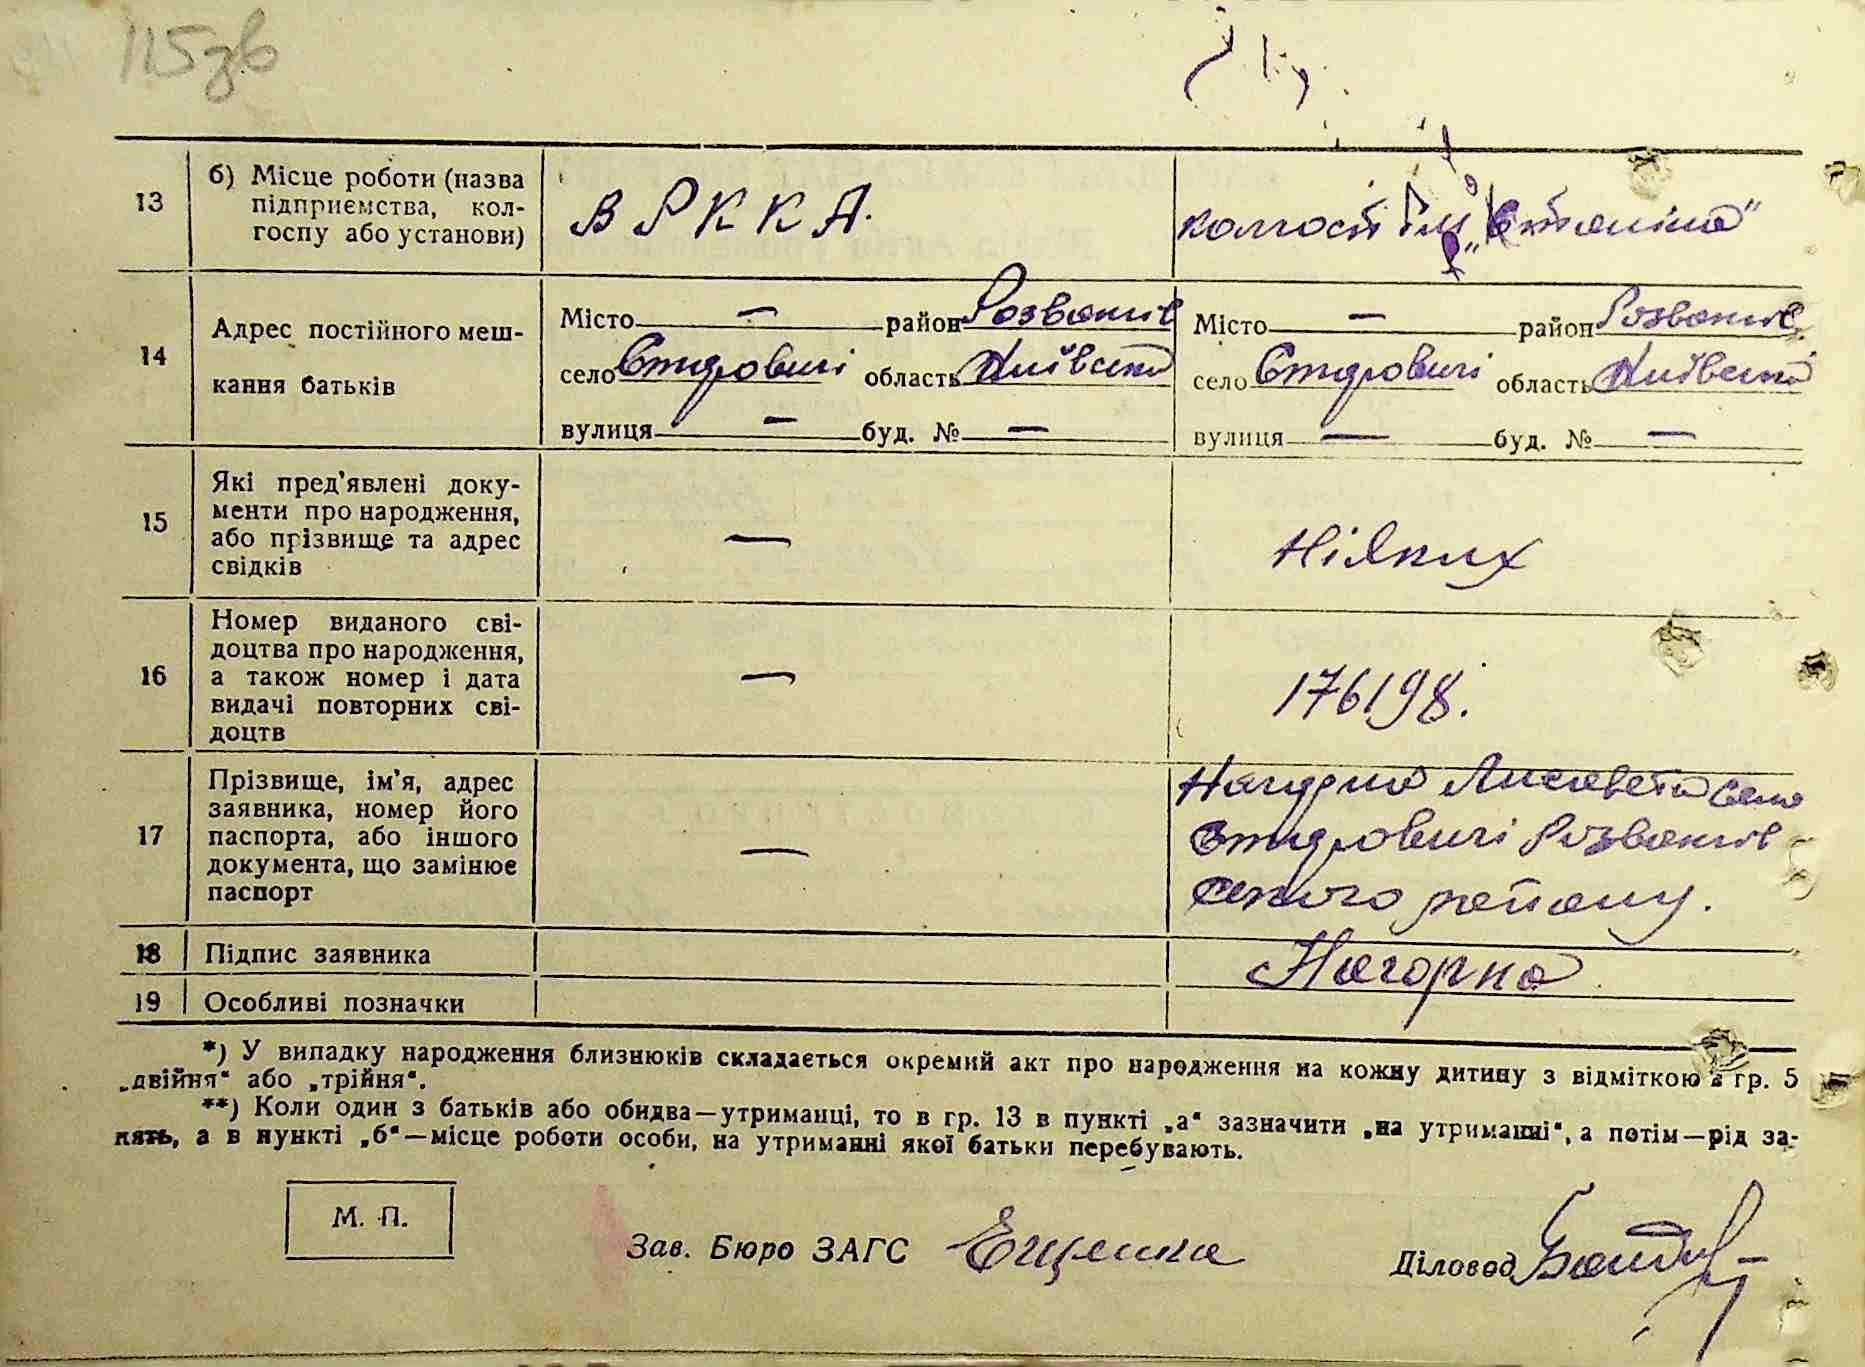 115зв
13 б) Місце роботи (назва
підприємства, кол-
госпу або установи)
В РККА.
колгосп Ім „Сталіна"
14 Адрес постійного меш-
кання батьків
Місто — район Розважів
село Стидровичі область Київська
вулиця — буд. № —
Місто — район Розважів
село Стидровичі область Київська
вулиця — буд. № —
15 Які пред'явлені доку-
менти про народження,
або прізвище та адрес
свідків
—
Ніяких
16 Номер виданого сві-
доцтва про народження,
а також номер і дата
видачі повторних сві-
доцтв
—
176198.
17 Прізвище, ім'я, адрес
заявника, номер його
паспорта, або іншого
документа, що замінює
паспорт
—
Нагорна Лисавета село
Стидровичі Розважів
ського району.
18 Підпис заявника
Нагорна
19 Особливі позначки
*) У випадку народження близнюків складається окремий акт про народження на кожну дитину з відміткою в гр. 5
„двійня" або „трійня".
**) Коли один з батьків або обидва—утриманці, то в гр. 13 в пункті „а" зазначити „на утриманні", а потім—рід за-
нять, а в пункті „б"—місце роботи особи, на утриманні якої батьки перебувають.
М. П.
Зав. Бюро ЗАГС Ещенко
Діловод